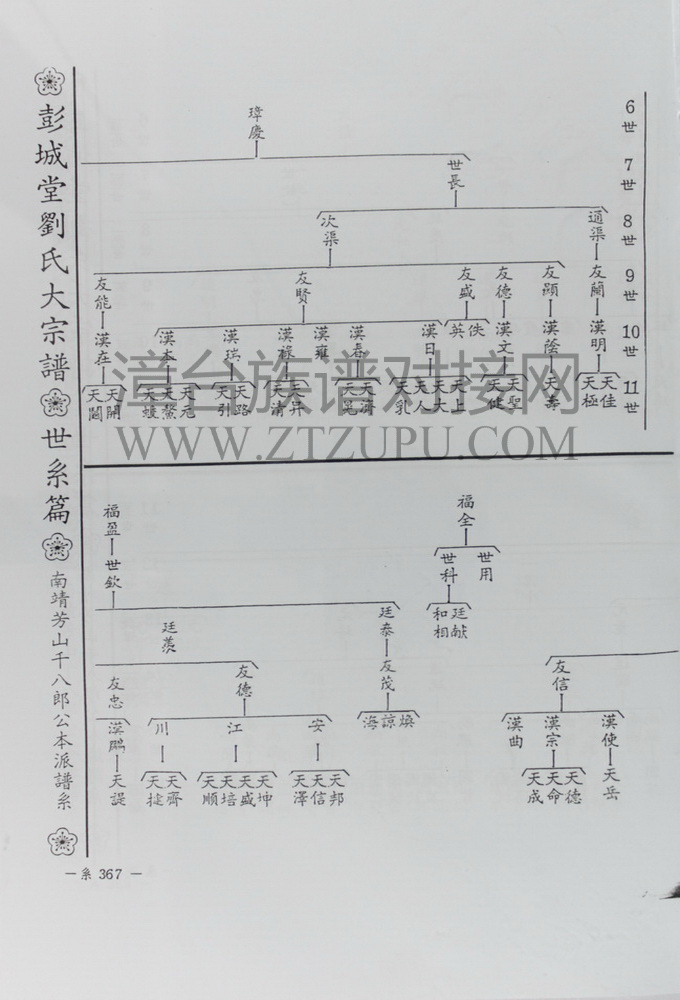 彭城堂劉氏大宗譜
世系篇
南靖芳山千八郎公本派譜系
6世
7世
8世
9世
10世
11世
璋慶
世長
通渠
次渠
友蘭
友顯
友德
友盛
友賢
友能
漢明
漢蔭
漢文
佚
英
漢日
漢春
漢雍
漢祿
漢瑞
漢本
漢在
天佳
天極
天壽
天聖
天健
天上
天大
天人
天乳
天濟
天晃
天井
天清
天路
天引
天元
天鰲
天開
天閣
漳台族谱对接网
WWW.ZTZUPU.COM
福全
福盈
世用
世科
世欽
廷献
和相
廷泰
廷羨
友信
友茂
友德
友忠
漢使
漢宗
漢曲
燒
諒
海
安
江
川
漢鵬
天岳
天德
天命
天成
天邦
天信
天澤
天坤
天盛
天培
天順
天齊
天㨗
天諟
— 系 367 —